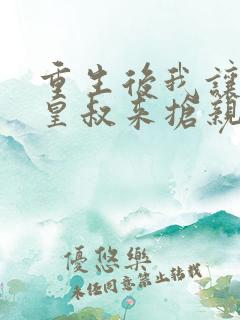 重生後我讓
皇叔來搶親
優悠樂
未任同意禁止轉載